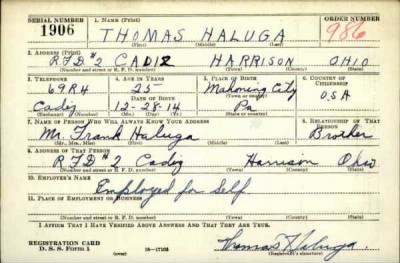 SERIAL NUMBER 1. NAME (Print) ORDER NUMBER
1906 THOMAS HALUGA 986
(First) (Middle) (Last)
2. ADDRESS (Print)
RFD #2 CADIZ HARRISON OHIO
(Number and street or R. F. D. number) (Town) (County) (State)
3. TELEPHONE 4. AGE IN YEARS 5. PLACE OF BIRTH 6. COUNTRY OF CITIZENSHIP
69R4 25 Mahoning City
DATE OF BIRTH (Town or county) U.S.A
Cadiz 12-28-14 Pa
(Exchange) (Number) (Mo.) (Day) (Yr.) (State or country)
7. NAME OF PERSON WHO WILL ALWAYS KNOW YOUR ADDRESS 8. RELATIONSHIP OF THAT PERSON
Mr. Frank Haluga Brother
(Mr., Mrs., Miss) (First) (Middle) (Last)
9. ADDRESS OF THAT PERSON
RFD #2 Cadiz Harrison Ohio
(Number and street or R. F. D. number) (Town) (County) (State)
10. EMPLOYER'S NAME
Employed for Self
11. PLACE OF EMPLOYMENT OR BUSINESS
(Number and street or R. F. D. number) (Town) (County) (State)
I AFFIRM THAT I HAVE VERIFIED ABOVE ANSWERS AND THAT THEY ARE TRUE.
REGISTRATION CARD
D. S. S. FORM 1 Thomas Haluga
(Registrant's signature)